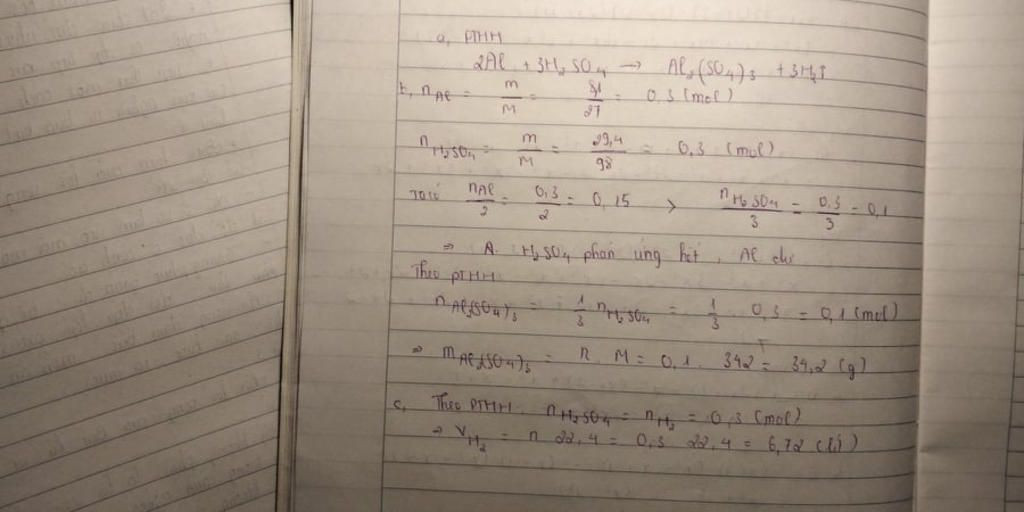 a, PTHH
2Al + 3H₂SO₄ → Al₂(SO₄)₃ + 3H₂↑
b, nAl = m/M = 8,1/27 = 0,3 (mol)
nH₂SO₄ = m/M = 29,4/98 = 0,3 (mol)
Ta có nAl/2 = 0,3/2 = 0,15 > nH₂SO₄/3 = 0,3/3 = 0,1
⇒ H₂SO₄ phản ứng hết, Al dư
Theo PTHH
nAl₂(SO₄)₃ = 1/3 nH₂SO₄ = 1/3 . 0,3 = 0,1 (mol)
⇒ mAl₂(SO₄)₃ = n . M = 0,1 . 342 = 34,2 (g)
c, Theo PTHH nH₂SO₄ = nH₂ = 0,3 (mol)
⇒ VH₂ = n . 22,4 = 0,3 . 22,4 = 6,72 (lít)